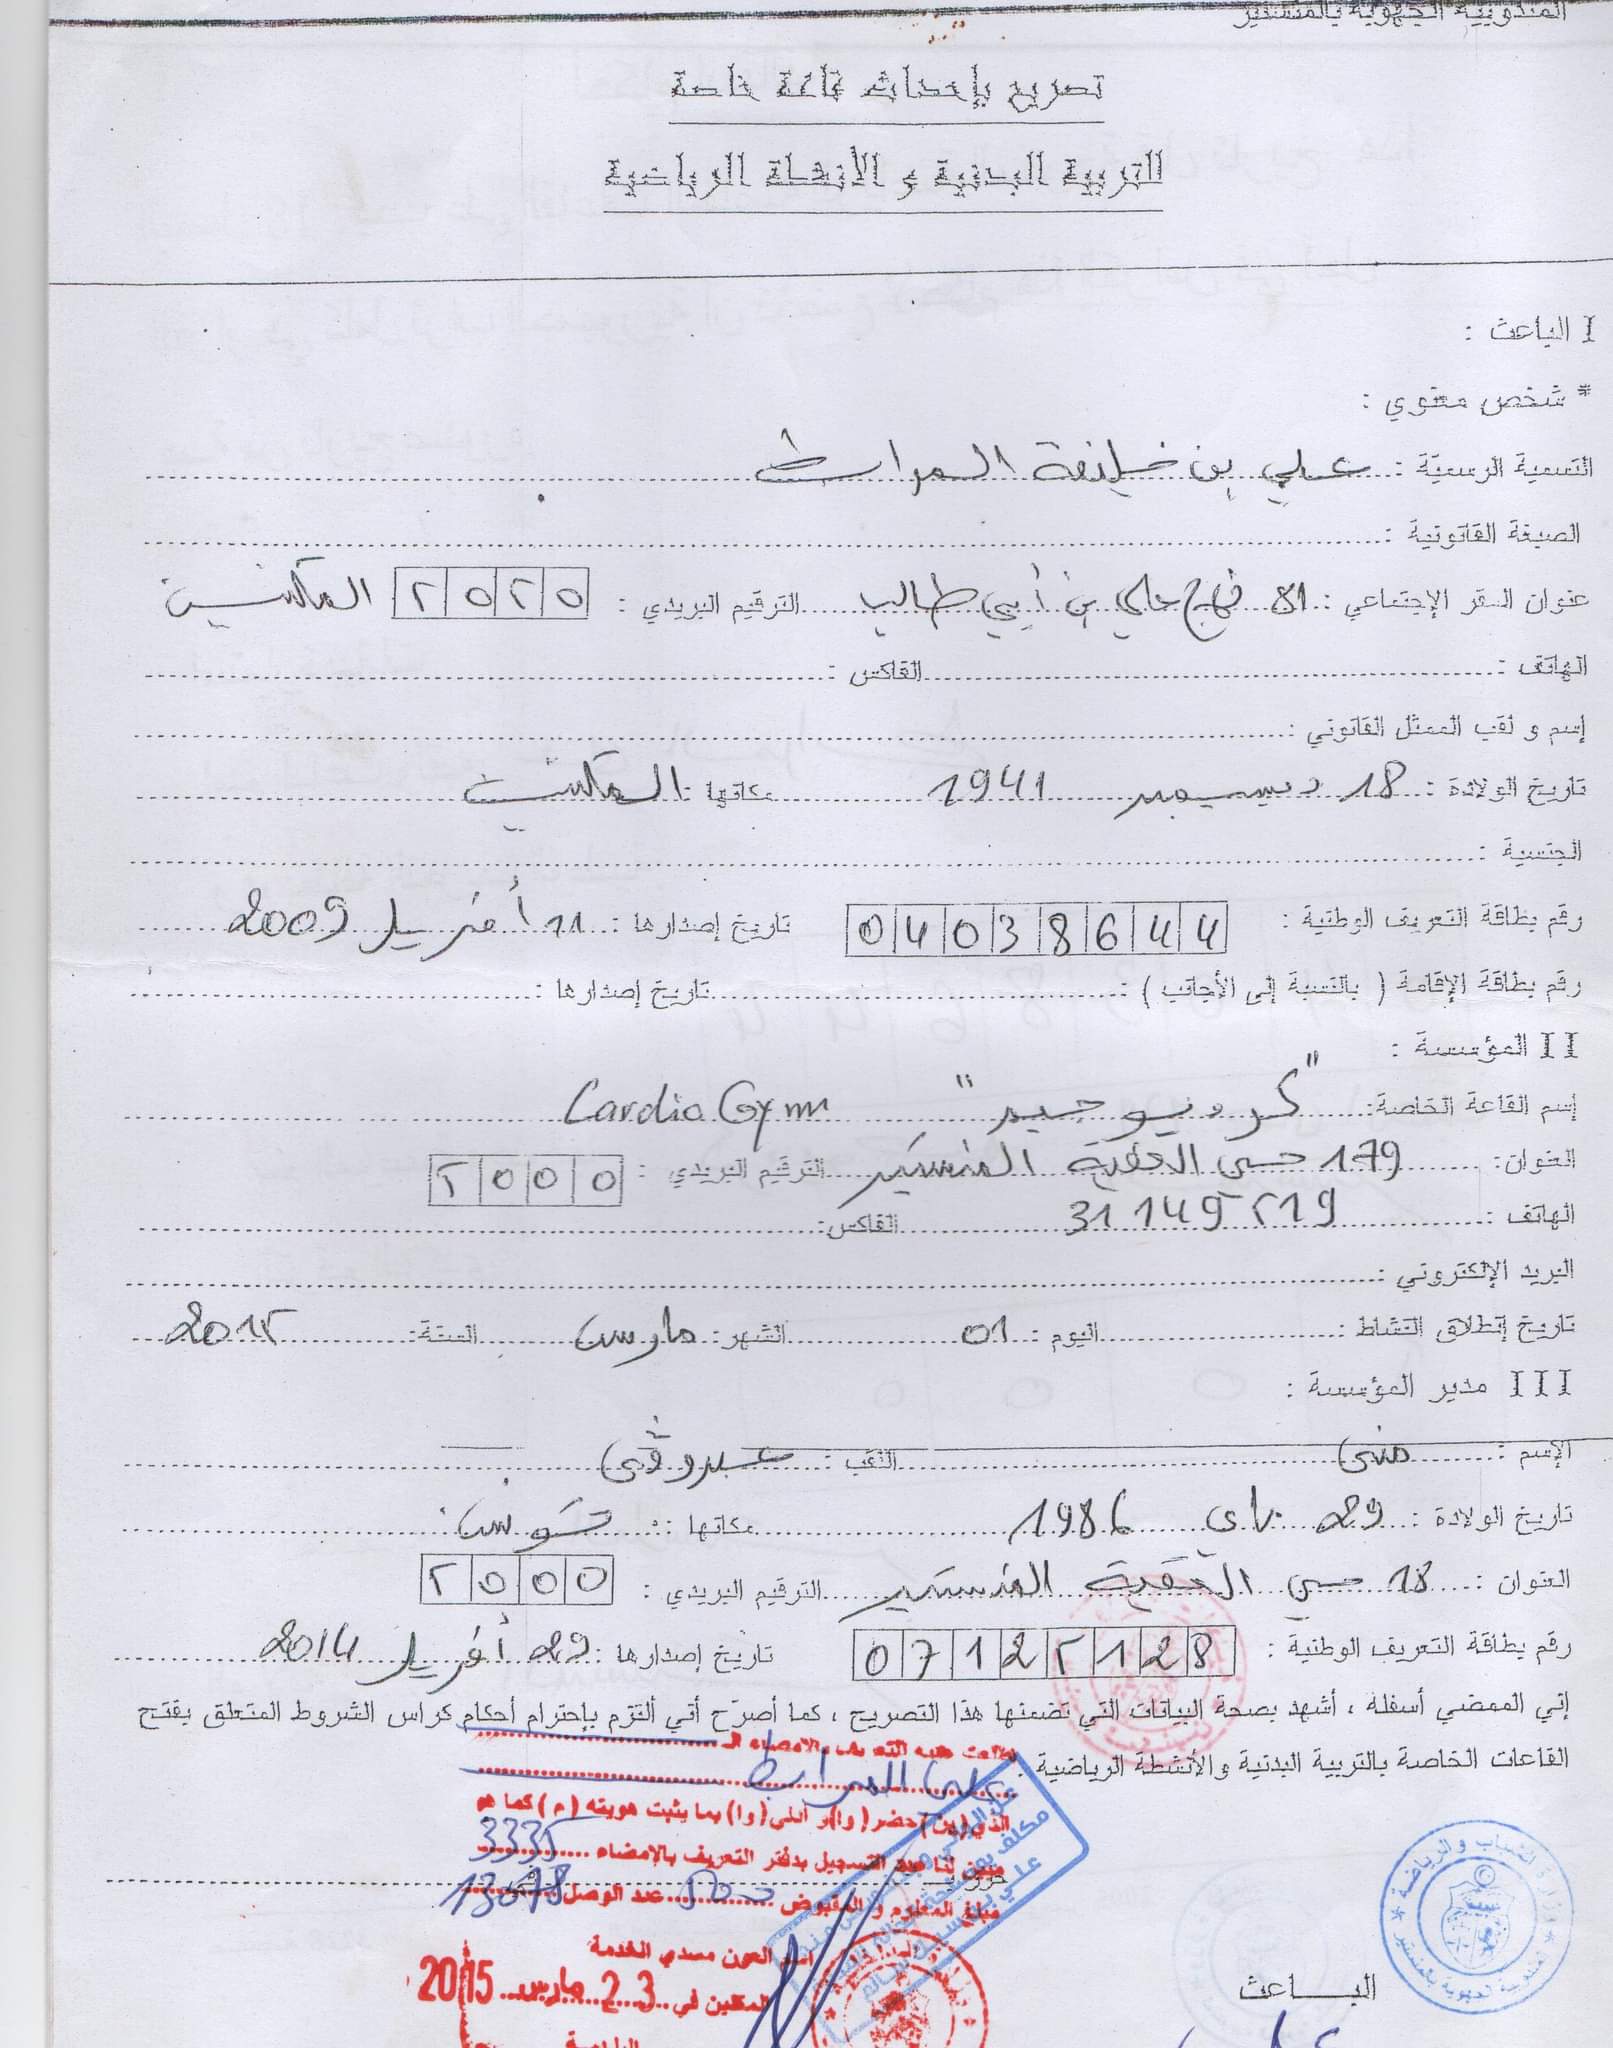 المندوبية الجهوية بالمنستير
تصريح بإحداث قاعة خاصة
للتربية البدنية و الأنشطة الرياضية
I الباعث :
* شخص معنوي :
التسمية الرسمية : علي بن خليفة المرابط
الصبغة القانونية :
عنوان المقر الإجتماعي : 18 نهج علي بن أبي طالب الترقيم البريدي : ٢٥٢٥ المكنين
الهاتف : الفاكس :
إسم و لقب الممثل القانوني :
تاريخ الولادة : 18 ديسمبر 1941 مكانها : المكنين
الجنسية :
رقم بطاقة التعريف الوطنية : 04038644 تاريخ إصدارها : 11 أفريل 2009
رقم بطاقة الإقامة ( بالنسبة إلى الأجانب ) : تاريخ إصدارها :
II المؤسسة :
إسم القاعة الخاصة : "كرديو جيم" Cardio Gym
العنوان : 179 حي العقبة المنستير الترقيم البريدي : ٢000
الهاتف : الفاكس:
البريد الإلكتروني :
تاريخ إنطلاق النشاط : اليوم : 01 الشهر : مارس السنة :
III مدير المؤسسة :
الإسم : منى اللقب :
تاريخ الولادة : 29 ماي 1986 مكانها : تونس
العنوان : 18 حي العقبة المنستير الترقيم البريدي : ٢000
رقم بطاقة التعريف الوطنية : 0712٢128 تاريخ إصدارها : 29 أفريل 2014
إني الممضي أسفله ، أشهد بصحة البيانات التي تضمنها هذا التصريح ، كما أصرّح أني ألتزم بإحترام أحكام كراس الشروط المتعلق بفتح
القاعات الخاصة بالتربية البدنية والأنشطة الرياضية .
علي المرابط
الذي (ين) حضر (وا) و أدلى (وا) بما يثبت هويته (م) كما هو
مبين لنا بعد التسجيل بدفتر التعريف بالإمضاء 3335
مبلغ المعلوم و المقبوض عدد الوصل 13078
العون مسدي الخدمة
المكنين في 23 مارس 2015
وزارة الشباب والرياضة
المندوبية الجهوية بالمنستير
الباعث